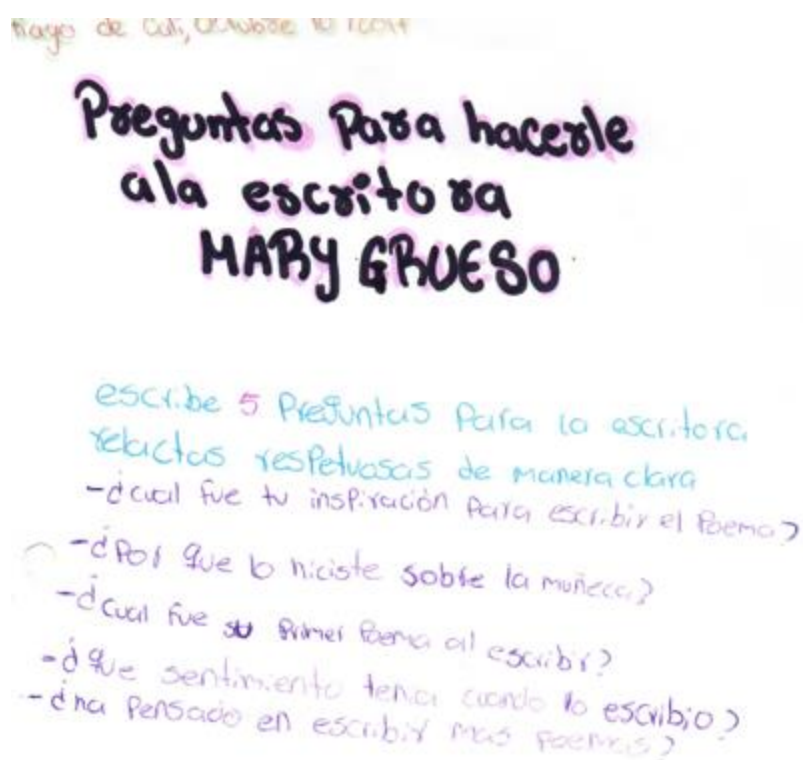 de Cali, Octubre 10
Preguntas Para hacerle
ala escritora
MARY GRUESO
escribe 5 Preguntas Para la escritora
respetuosas de manera clara
-¿cual fue tu inspiración Para escribir el Poema?
-¿Por que lo hiciste sobre la muñeca?
-¿cual fue su Primer Poema al escribir?
-¿que sentimiento tenia cuando lo escribio?
-¿ha Pensado en escribir mas poemas?